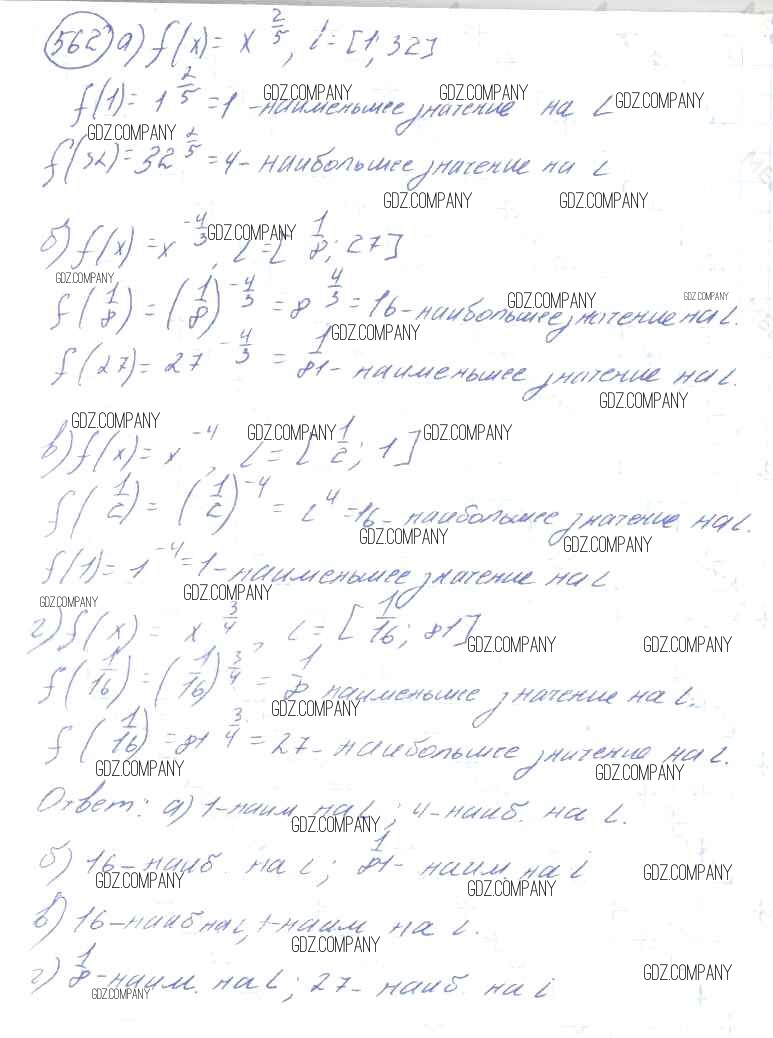 562 а) f(x) = x^(2/5), L = [1; 32]
f(1) = 1^(2/5) = 1 - наименьшее значение на L
GDZ.COMPANY GDZ.COMPANY GDZ.COMPANY
GDZ.COMPANY
f(32) = 32^(2/5) = 4 - наибольшее значение на L
GDZ.COMPANY GDZ.COMPANY
б) f(x) = x^(-4/3), L = [1/8; 27]
GDZ.COMPANY
GDZ.COMPANY
f(1/8) = (1/8)^(-4/3) = 8^(4/3) = 16 - наибольшее значение на L.
GDZ.COMPANY GDZ.COMPANY
f(27) = 27^(-4/3) = 1/81 - наименьшее значение на L.
GDZ.COMPANY
GDZ.COMPANY
GDZ.COMPANY GDZ.COMPANY GDZ.COMPANY
в) f(x) = x^(-4), L = [1/2; 1]
f(1/2) = (1/2)^(-4) = 2^4 = 16 - наибольшее значение на L.
GDZ.COMPANY GDZ.COMPANY
f(1) = 1^(-4) = 1 - наименьшее значение на L.
GDZ.COMPANY GDZ.COMPANY
г) f(x) = x^(3/4), L = [1/16; 81]
GDZ.COMPANY GDZ.COMPANY
f(1/16) = (1/16)^(3/4) = 1/8 наименьшие значение на L.
GDZ.COMPANY
f(1/16) = 81^(3/4) = 27 - наибольшее значение на L.
GDZ.COMPANY GDZ.COMPANY
Ответ: а) 1 - наим. на L; 4 - наиб. на L.
GDZ.COMPANY
б) 16 - наиб. на L; 1/81 - наим. на L
GDZ.COMPANY GDZ.COMPANY GDZ.COMPANY
в) 16 - наиб на L, 1 - наим на L.
GDZ.COMPANY
г) 1/8 - наим. на L; 27 - наиб. на L
GDZ.COMPANY GDZ.COMPANY